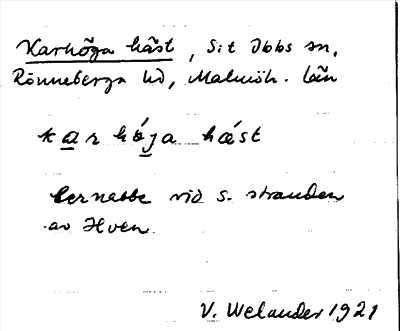 Karhöga häst, S:t Ibbs sn,
Rönnebergs hd, Malmöh. län
karhö́ja hǽst
bernabbe vid s. stranden
av Hven.
V. Welander 1921